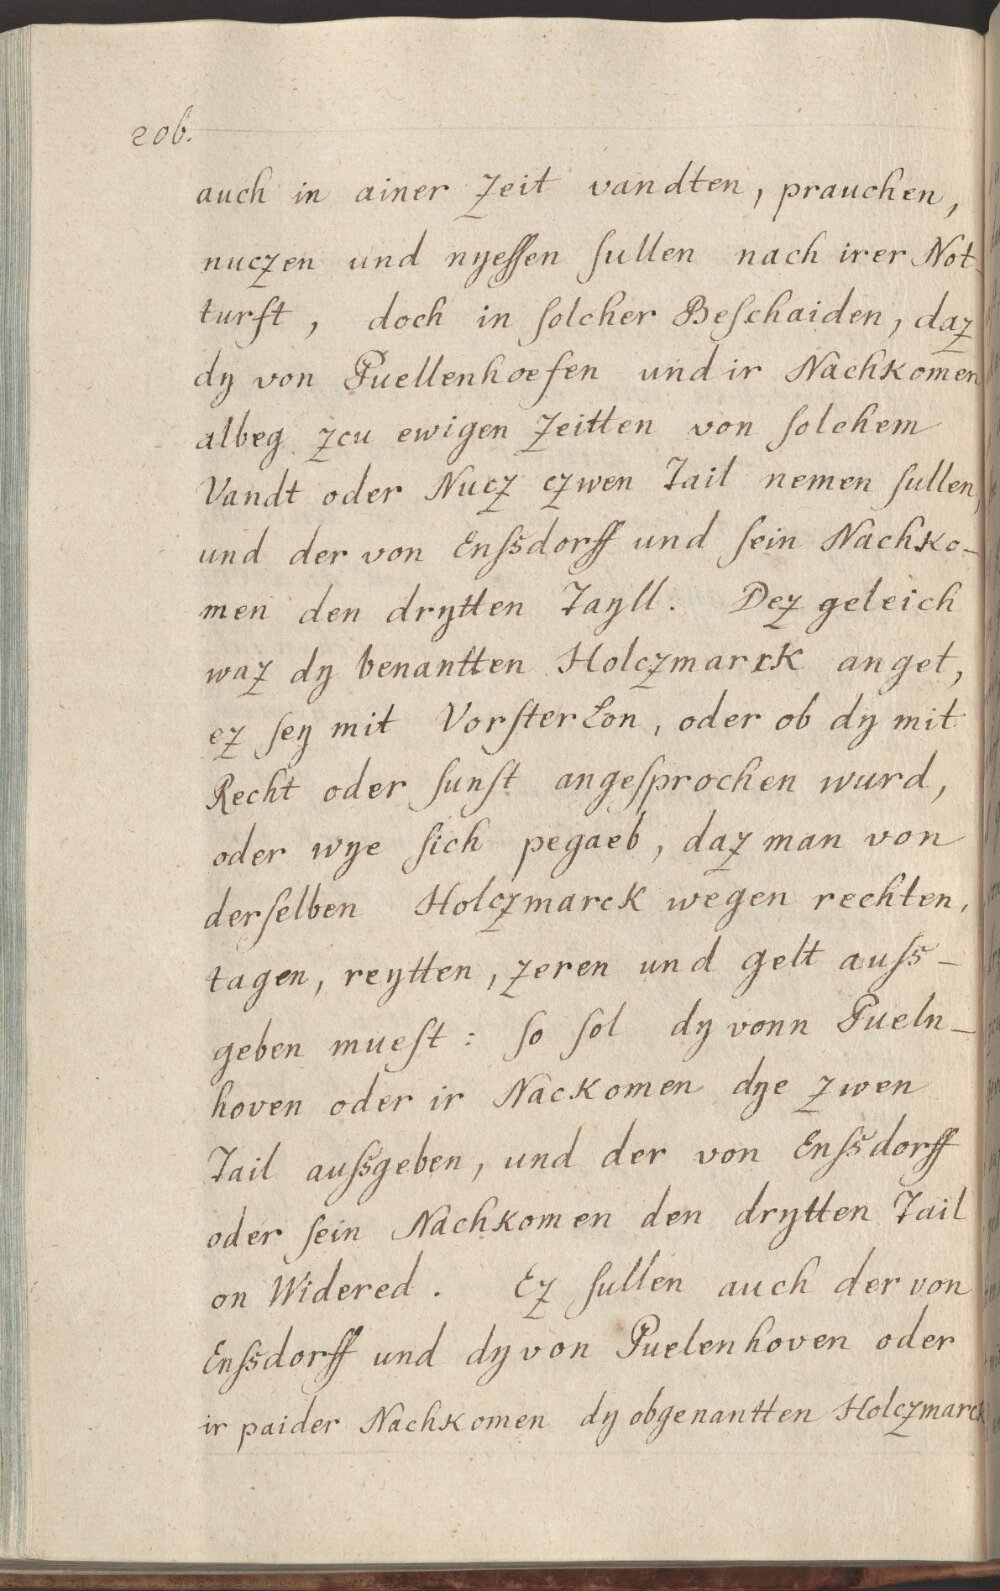 206.
auch in ainer Zeit vandten, prauchen,
nuczen und nyeſſen ſullen nach irer Not-
turft, doch in ſolcher Beſchaiden, daz
dy von Puellenhoefen und ir Nachkomen
albeg zcu ewigen Zeitten von ſolchem
Vandt oder Nucz czwen Tail nemen ſullen,
und der von Enſsdorff und ſein Nachko-
men den drytten Tayll. Dez geleich
waz dy benantten Holczmarrk anget,
ez ſey mit Vorſter Lon, oder ob dy mit
Recht oder ſunſt angeſprochen wurd,
oder wye ſich pegaeb, daz man von
derſelben Holczmarck wegen rechten,
tagen, reytten, zeren und gelt auſs-
geben mueſt: ſo ſol dy vonn Pueln-
hoven oder ir Nackomen dye zwen
Tail auſsgeben, und der von Enſsdorff
oder ſein Nachkomen den drytten Tail
on Widered. Ez ſullen auch der von
Enſsdorff und dy von Puelenhoven oder
ir paider Nachkomen dy obgenantten Holczmarck